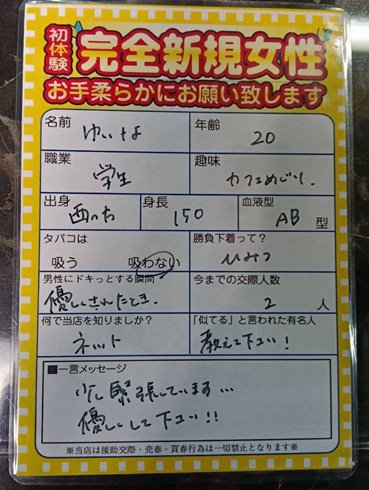 初体験 完全新規女性
お手柔らかにお願い致します
名前 ゆいな 年齢 20
職業 学生 趣味 カフェめぐり。
出身 西の方 身長 150 血液型 AB 型
タバコは 吸う 吸わない
勝負下着って? ひみつ
男性にドキっとする瞬間 優しくされたとき。
今までの交際人数 2 人
何で当店を知りましたか? ネット
「似てる」と言われた有名人 教えて下さい!
■一言メッセージ
少し緊張しています…
優しくして下さい!!
※当店は援助交際・売春・買春行為は一切禁止となります※